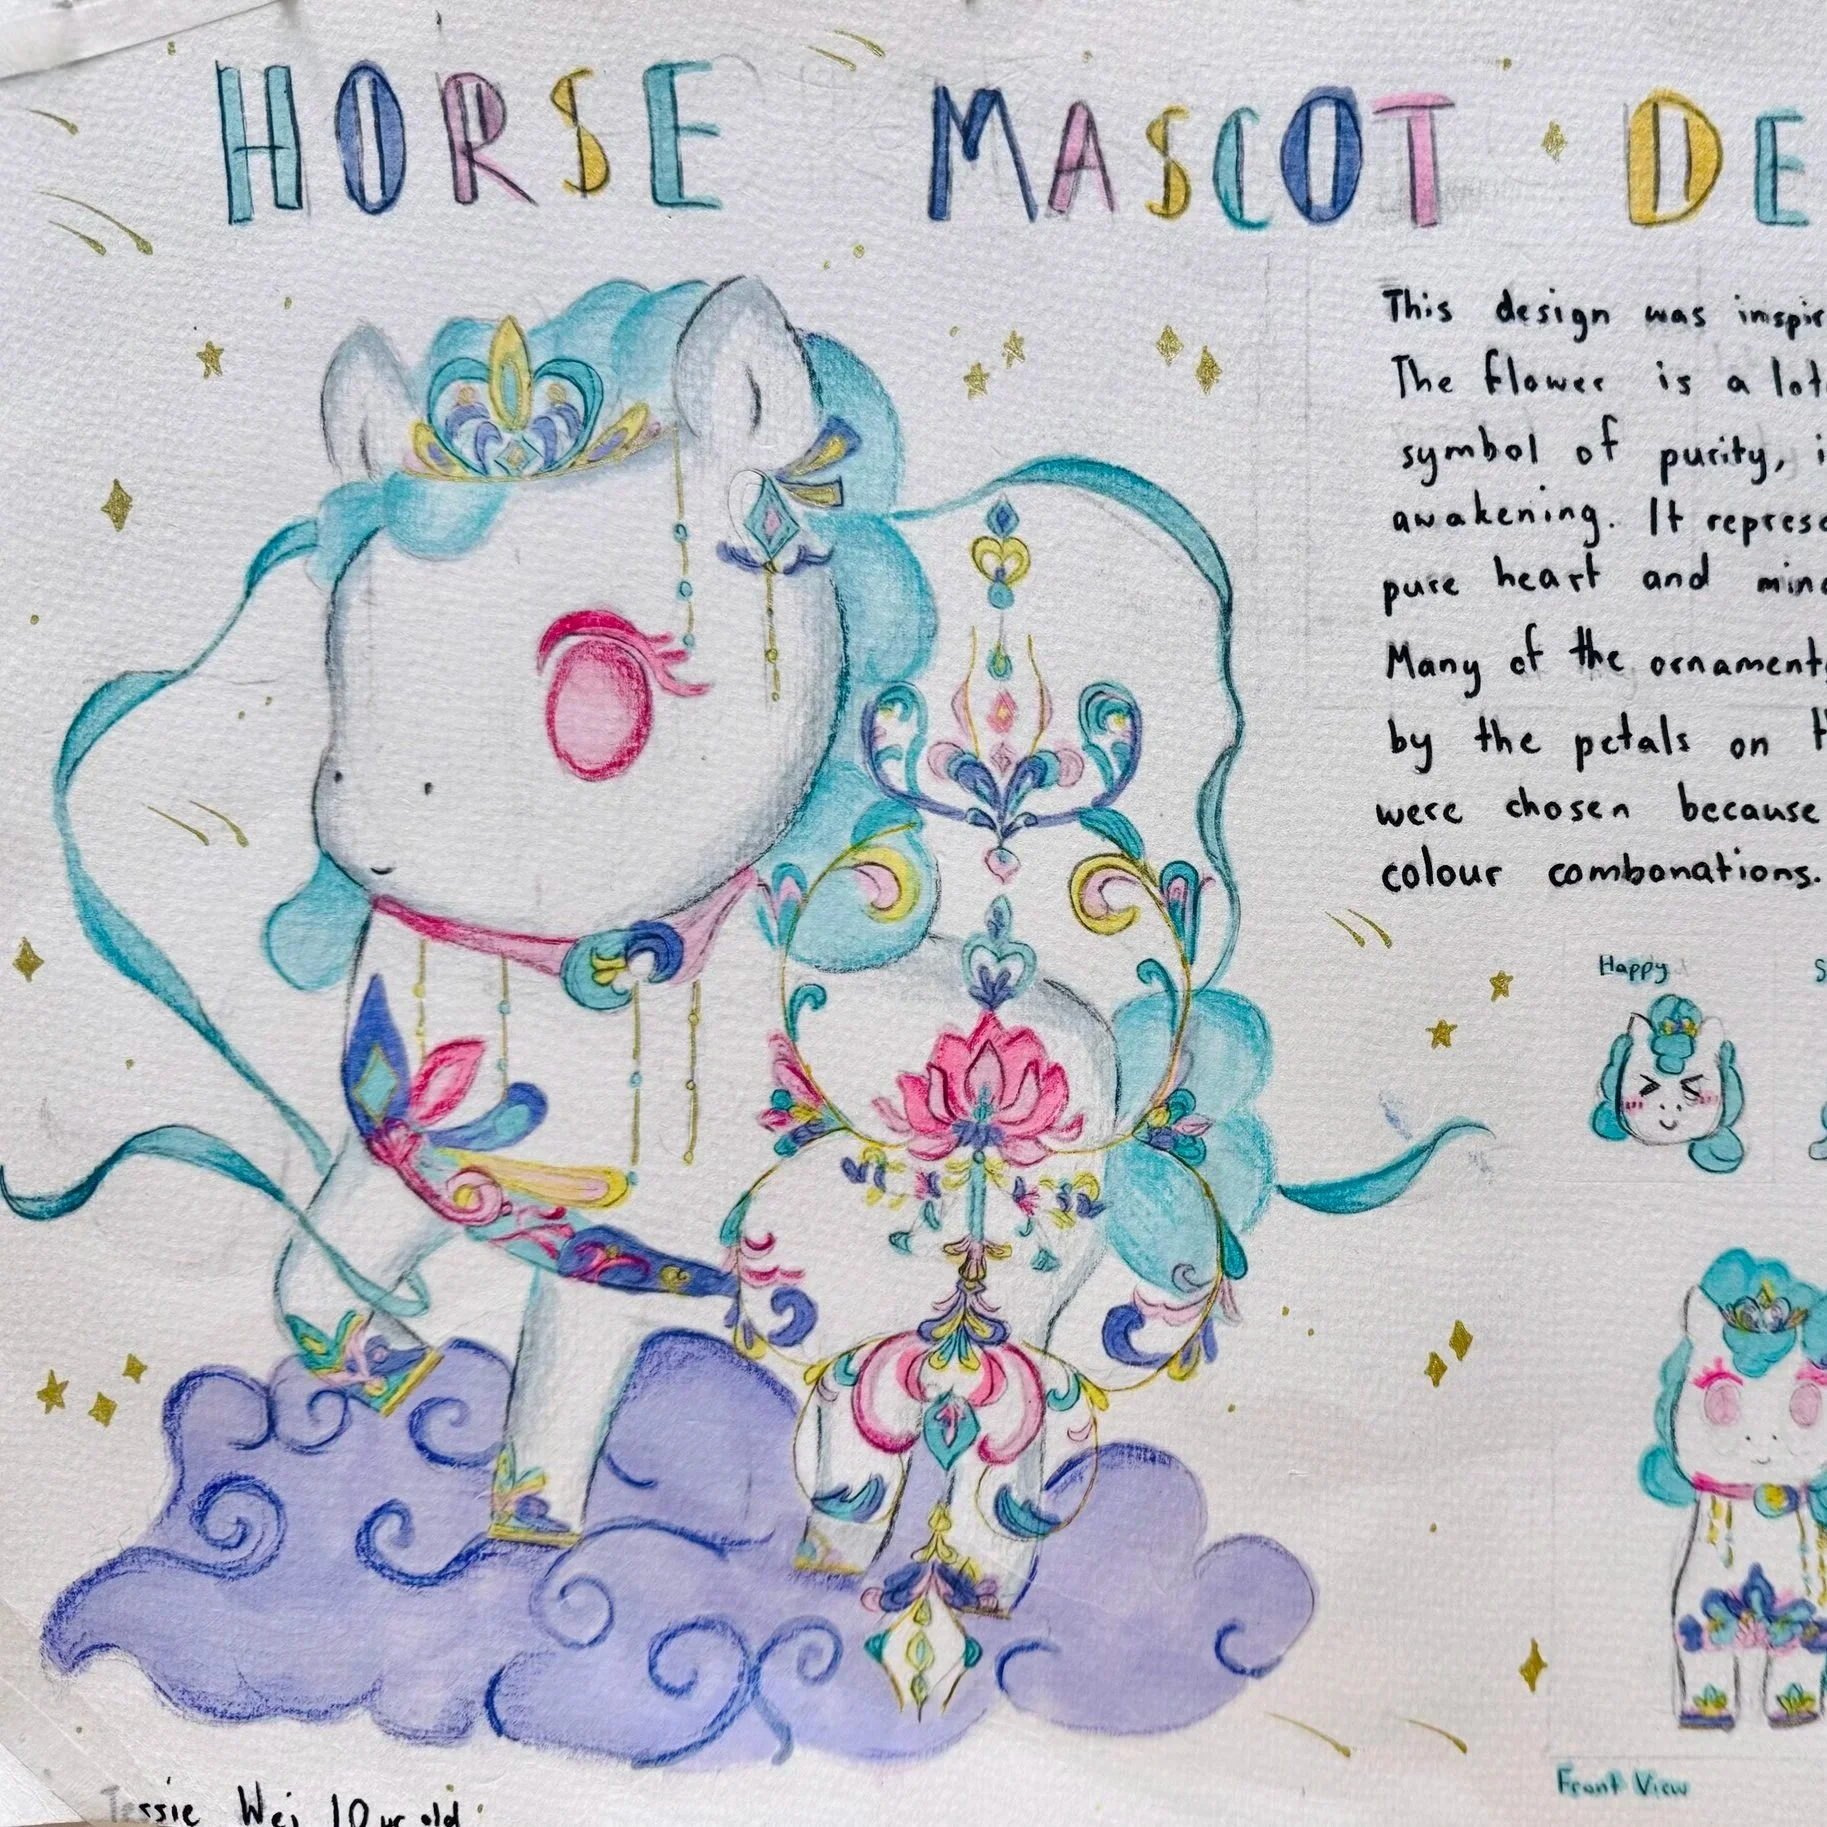 HORSE MASCOT DE
This design was inspir
The flower is a lot
symbol of purity, i
awakening. It represe
pure heart and mind
Many of the ornaments
by the petals on t
were chosen because
colour combonations.
Happy S
Front View
Tessie Wei 10 yr old